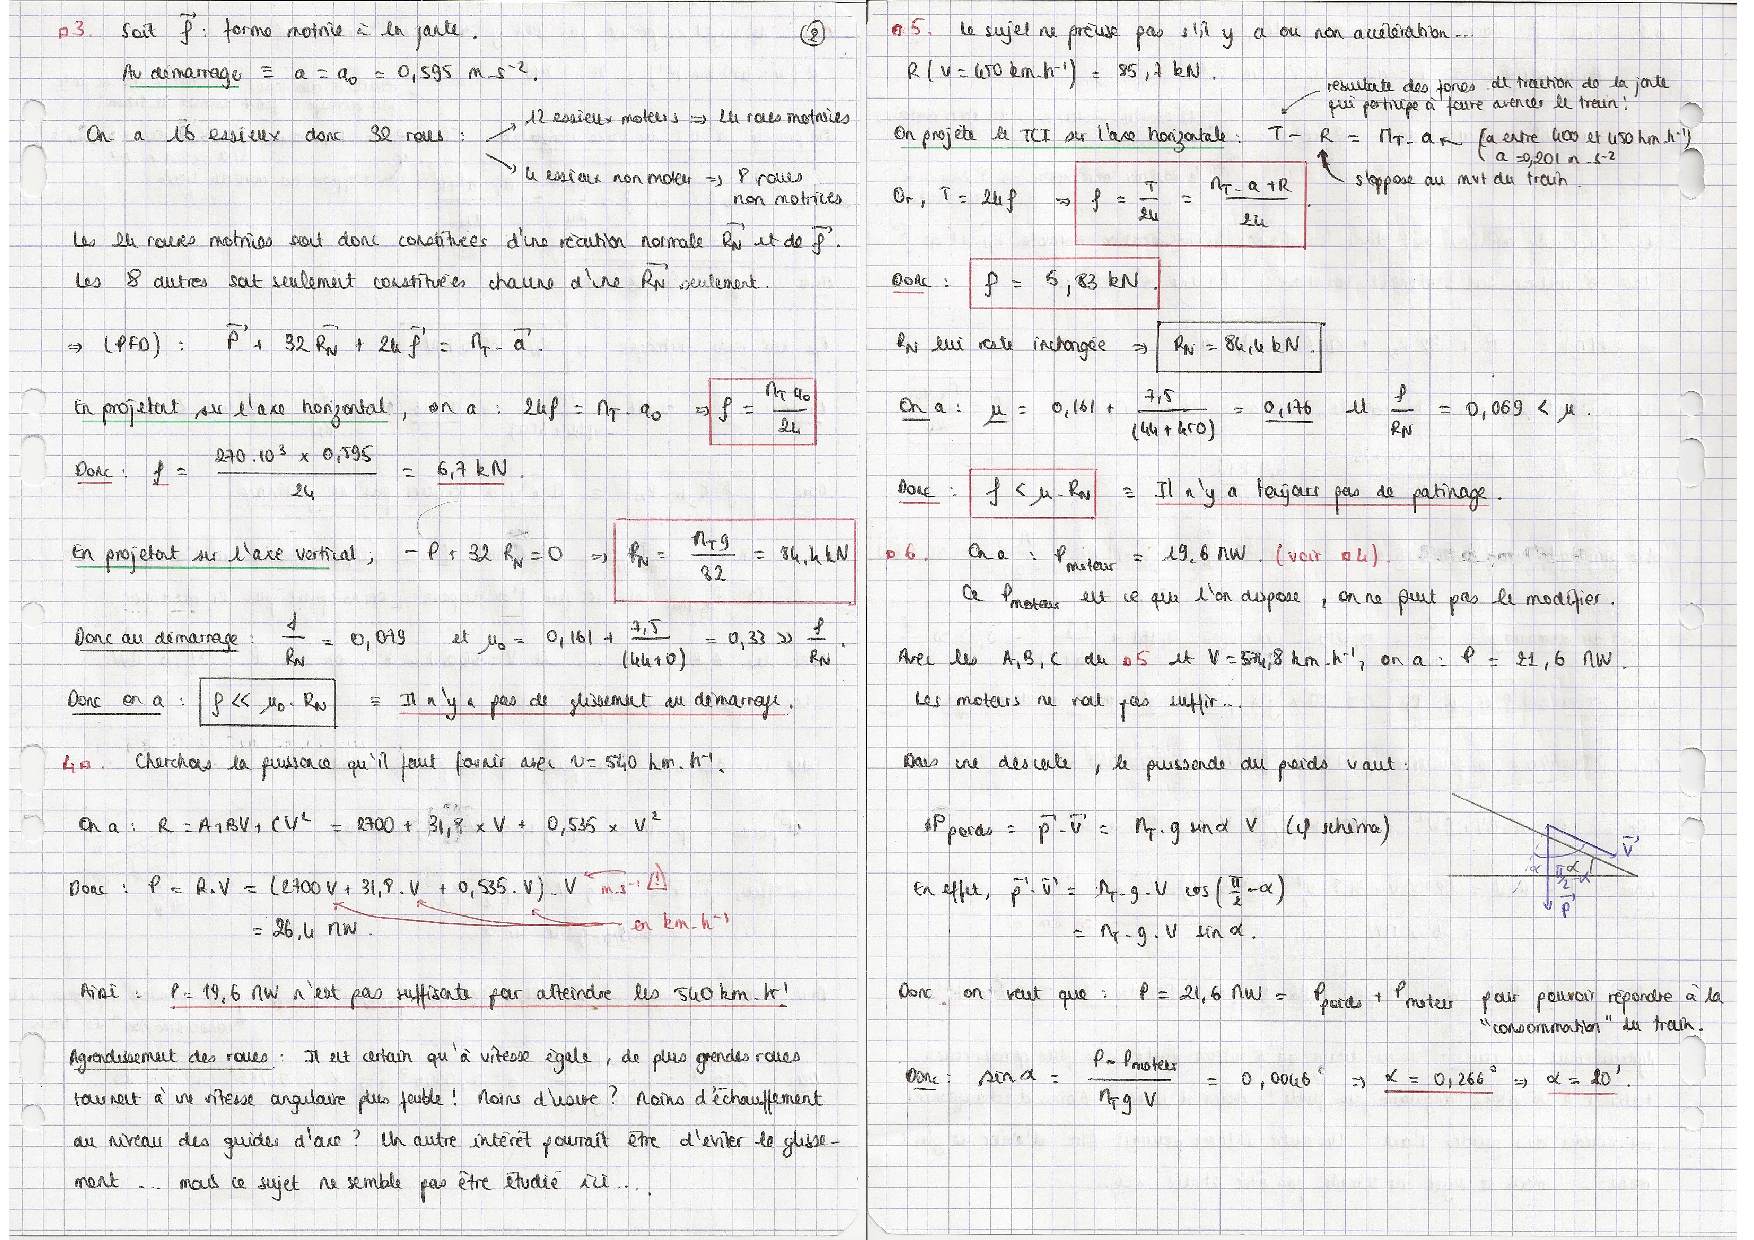 ▫3. Soit f⃗ : forme motrice à la jante. ②
Au démarrage ≡ a = a₀ = 0,595 m.s⁻².
On a 16 essieux donc 32 roues :
12 essieux moteurs ⇒ 24 roues motrices
4 essieux non moteur ⇒ 8 roues
non motrices
Les 24 roues motrices sont donc constituées d'une réaction normale R⃗N et de f⃗.
Les 8 autres sont seulement constituées chacune d'une R⃗N seulement.
⇒ (PFD) : P⃗ + 32 R⃗N + 24 f⃗ = MT . a⃗.
En projetant sur l'axe horizontal, on a : 24f = MT . a₀ ⇒ f = MT a₀ / 24
Donc : f = 270.10³ x 0,595 / 24 = 6,7 kN.
En projetant sur l'axe vertical, - P + 32 RN = 0 ⇒ RN = MT g / 32 = 84,4 kN
Donc au démarrage : f / RN = 0,079 et μ₀ = 0,161 + 7,5 / (44+0) = 0,33 >> f / RN.
Donc on a : f << μ₀ . RN ≡ Il n'y a pas de glissement au démarrage.
4▫. Cherchons la puissance qu'il faut fournir avec v = 540 km.h⁻¹.
On a : R = A+BV+CV² = 2700 + 31,8 x V + 0,535 x V²
Donc : P = R.V = (2700 V + 31,8.V + 0,535.V) . V m.s⁻¹ ⚠
= 26,4 MW. en km.h⁻¹
Ainsi : P = 19,6 MW n'est pas suffisante par atteindre les 540 km.h⁻¹
Agrandissement des roues : Il est certain qu'à vitesse égale, de plus grandes roues
tournent à une vitesse angulaire plus faible ! Moins d'usure ? Moins d'échauffement
au niveau des guides d'axe ? Un autre intérêt pourrait être d'éviter le glisse-
ment ... mais ce sujet ne semble pas être étudié ici ....
▫5. Le sujet ne précise pas s'il y a ou non accélération...
R(v = 450 km.h⁻¹) = 85,7 kN.
résultante des forces de traction de la jante
qui participe à faire avancer le train !
On projète le TCI sur l'axe horizontale : T - R = MT . a (a entre 400 et 450 km.h⁻¹)
a = 0,201 m.s⁻²
s'oppose au mvt du train.
Or, T = 24f ⇒ f = T / 24 = MT . a + R / 24
Donc : f = 5,83 kN.
RN lui reste inchangée ⇒ RN = 84,4 kN.
On a : μ = 0,161 + 7,5 / (44+450) = 0,176 et f / RN = 0,069 < μ.
Donc : f < μ . RN ≡ Il n'y a toujours pas de patinage.
▫6. On a : Pmoteur = 19,6 MW. (voir ▫4).
Ce Pmoteur est ce que l'on dispose, on ne peut pas le modifier.
Avec les A, B, C du ▫5 et V = 574,8 km.h⁻¹, on a : P = 21,6 MW.
Les moteurs ne vont pas suffir...
Dans une descente, la puissance du poids vaut :
Ppoids = p⃗ . v⃗ = MT . g sinα V (cf schéma)
En effet, p⃗ . v⃗ = MT . g . V cos(π/2 - α)
= MT . g . V sin α.
α π/2 - α α V⃗ P⃗
Donc on veut que : P = 21,6 MW = Ppoids + Pmoteur pour pouvoir répondre à la
"consommation" du train.
Donc : sin α = P - Pmoteur / MT g V = 0,0046° ⇒ α = 0,266° ⇒ α = 20'.